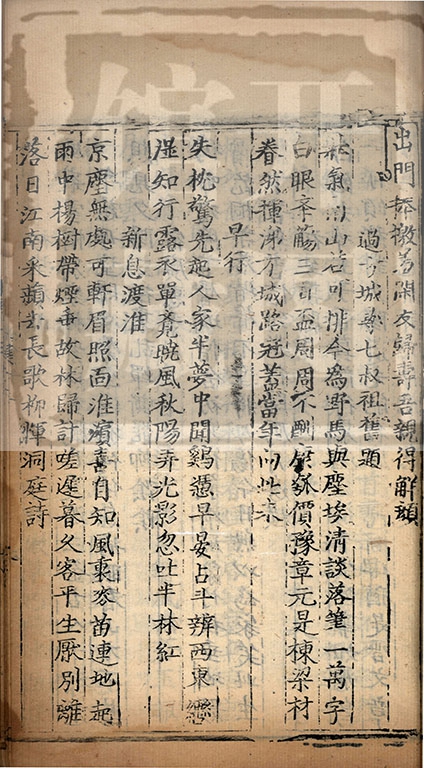 出門奉檄羞閒友歸壽吾親得解顏
過方城尋七叔祖舊題
壯氣南山若可排今為野馬與塵埃清談落筆一萬字
白眼舉觴三百盃周周不酬康瓠價豫章元是棟梁材
眷然揮涕方城路冠蓋當年向此來
早行
失枕驚先起人家半夢中聞鷄憑早晏占斗辨西東轡
濕知行露衣單覺曉風秋陽弄光影忽吐半林紅
新息渡淮
京塵無處可軒眉照面淮濱喜自知風裹麥苗連地起
雨中楊樹帶煙垂故林歸計嗟遲暮久客平生厭別離
落日江南采蘋去長歌柳惲洞庭詩